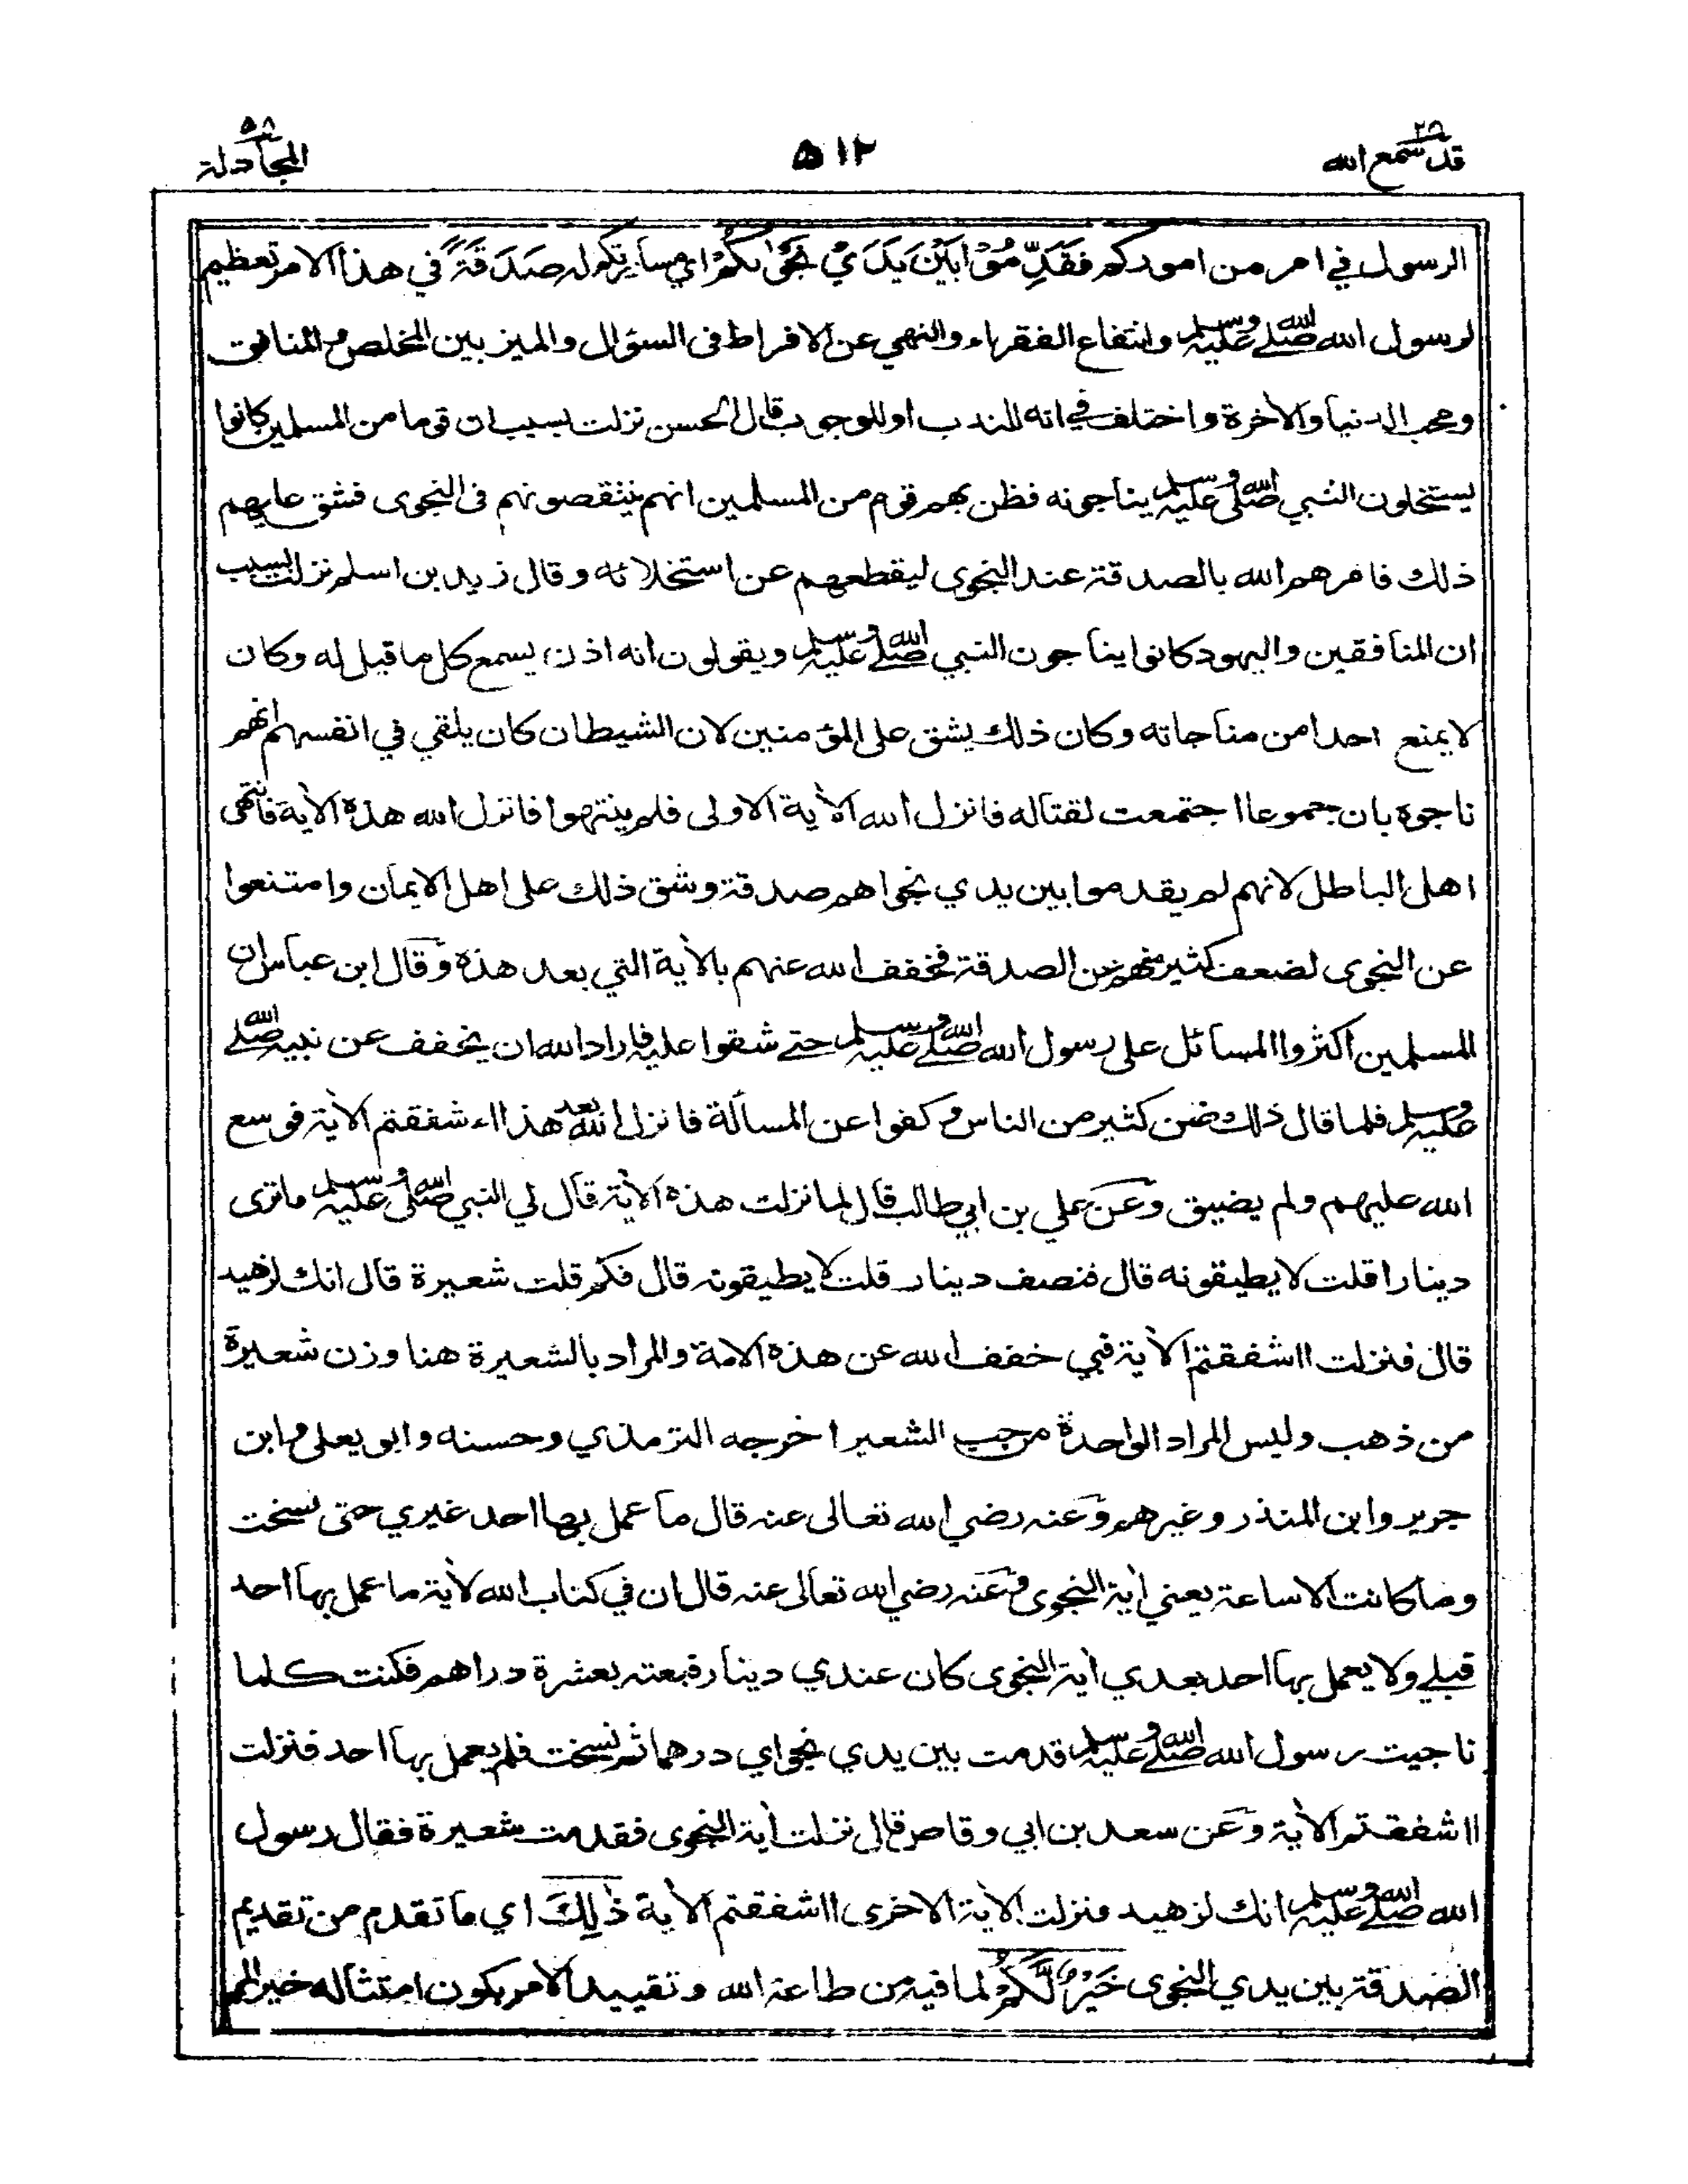 قد سمع الله ٢٨
٥١٢
المجادلة ٥٨
الرسول في امر من اموركم فَقَدِّمُوْا بَيْنَ يَدَيْ نَجْوَاىكُمْ اي مسارتكم له صَدَقَةً في هذا الامر تعظيم
لرسول الله صلى الله عليه وسلم وانتفاع الفقراء والنهي عن الافراط فى السؤال والميز بين المخلص والمنافق
ومحب الدنيا والاخرة واختلف في انه للندب او للوجوب قال الحسن نزلت بسبب ان قوما من المسلمين كانوا
يستخلون النبي صلى الله عليه وسلم يناجونه فظن بهم قوم من المسلمين انهم ينتقصونهم فى النجوى فشق عليهم
ذلك فامرهم الله بالصدقة عند النجوى ليقطعهم عن استخلائه وقال زيد بن اسلم نزلت بسبب
ان المنافقين واليهود كانوا يناجون النبي صلى الله عليه وسلم ويقولون انه اذن يسمع كل ما قيل له وكان
لا يمنع احدا من مناجاته وكان ذلك يشق على المؤمنين لان الشيطان كان يلقي في انفسهم انهم
ناجوه بان جموعا اجتمعت لقتاله فانزل الله الأية الاولى فلم ينتهوا فانزل الله هذه الأية فانتهى
اهل الباطل لانهم لم يقدموا بين يدي نجواهم صدقة وشق ذلك على اهل الايمان وامتنعوا
عن النجوى لضعف كثير منهم عن الصدقة فخفف الله عنهم بالأية التي بعد هذه وقال ابن عباس ان
المسلمين اكثروا المسائل على رسول الله صلى الله عليه وسلم حتى شقوا عليه فاراد الله ان يخفف عن نبيه صلى الله
عليه وسلم فلما قال ذلك ضن كثير من الناس وكفوا عن المسألة فانزل الله بعد هذا ءاشفقتم الأية فوسع
الله عليهم ولم يضيق وعن علي بن ابي طالب قال لما نزلت هذه الأية قال لي النبي صلى الله عليه وسلم ما ترى
دينارا قلت لا يطيقونه قال فنصف دينار قلت لا يطيقونه قال فكم قلت شعيرة قال انك لزهيد
قال فنزلت ااشفقتم الأية فبي خفف الله عن هذه الامة والمراد بالشعيرة هنا وزن شعيرة
من ذهب وليس المراد الواحدة من حب الشعير اخرجه الترمذي وحسنه وابو يعلى وابن
جرير وابن المنذر وغيرهم وعنه رضي الله تعالى عنه قال ما عمل بها احد غيري حتى نسخت
وما كانت الا ساعة يعني أية النجوى وعنه رضي الله تعالى عنه قال ان في كتاب الله لأية ما عمل بها احد
قبلي ولا يعمل بها احد بعدي أية النجوى كان عندي دينار فبعته بعشرة دراهم فكنت كلما
ناجيت رسول الله صلى الله عليه وسلم قدمت بين يدي نجواي درهما ثم نسخت فلم يعمل بها احد فنزلت
ااشفقتم الأية وعن سعد بن ابي وقاص قال نزلت أية النجوى فقدمت شعيرة فقال رسول
الله صلى الله عليه وسلم انك لزهيد فنزلت الأية الاخرى ااشفقتم الأية ذٰلِكَ اي ما تقدم من تقديم
الصدقة بين يدي النجوى خَيْرٌ لَّكُمْ لما فيه من طاعة الله وتقييد الامر بكون امتثاله خيرا لهم